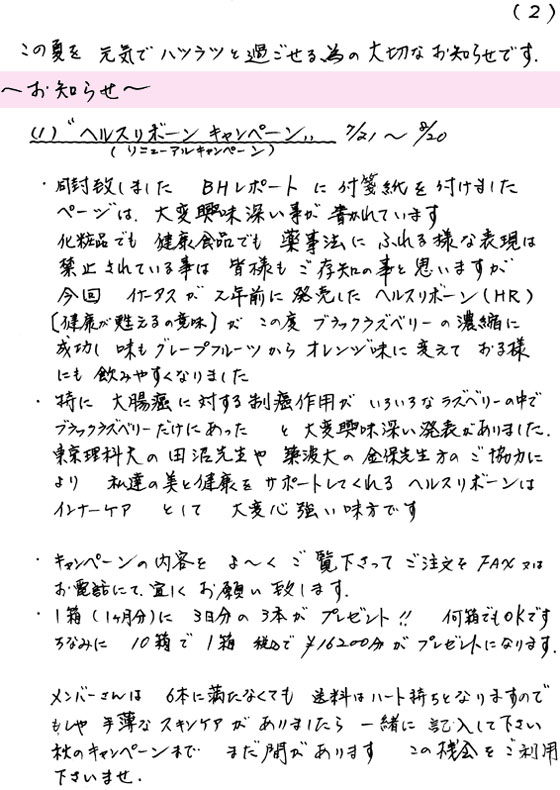 (2)
この夏を 元気で ハツラツと過ごせる為の大切なお知らせです.
〜お知らせ〜
(1)“ヘルスリボーン キャンペーン„ 7/21〜8/20
(リニューアルキャンペーン)
・同封致しました BHレポート に付箋紙を付けました
ページは、大変興味深い事が書かれています
化粧品でも 健康食品でも 薬事法に ふれる様な表現は
禁止されている事は 皆様も ご存知の事と思いますが
今回 イータスが2年前に発売したヘルスリボーン(HR)
〔健康が甦えるの意味〕が この度 ブラックラズベリーの濃縮に
成功し 味もグレープフルーツから オレンジ味に変えて
にも 飲みやすくなりました
・特に 大腸癌に対する制癌作用が いろいろなラズベリーの中で
ブラックラズベリーだけにあった と大変興味深い発表がありました.
東京理科大の田沼先生や 筑波大の金保先生方のご協力に
より 私達の美と健康を サポートしてくれる ヘルスリボーンは
インナーケア として 大変心強い味方です
・キャンペーンの内容を よ〜く ご覧下さって ご注文を FAX又は
お電話にて、宜しく お願い致します.
・1箱(1ヶ月分)に 3日分の3本が プレゼント!! 何箱でもOKです
ちなみに 10箱で1箱 税込で ¥16200分が プレゼントになります.
メンバーさんは 6本に満たなくても 送料はハート持ちとなりますので
もしや 手薄なスキンケアがありましたら 一緒に記入して下さい
秋のキャンペーンまで まだ間があります この機会をご利用
下さいませ.